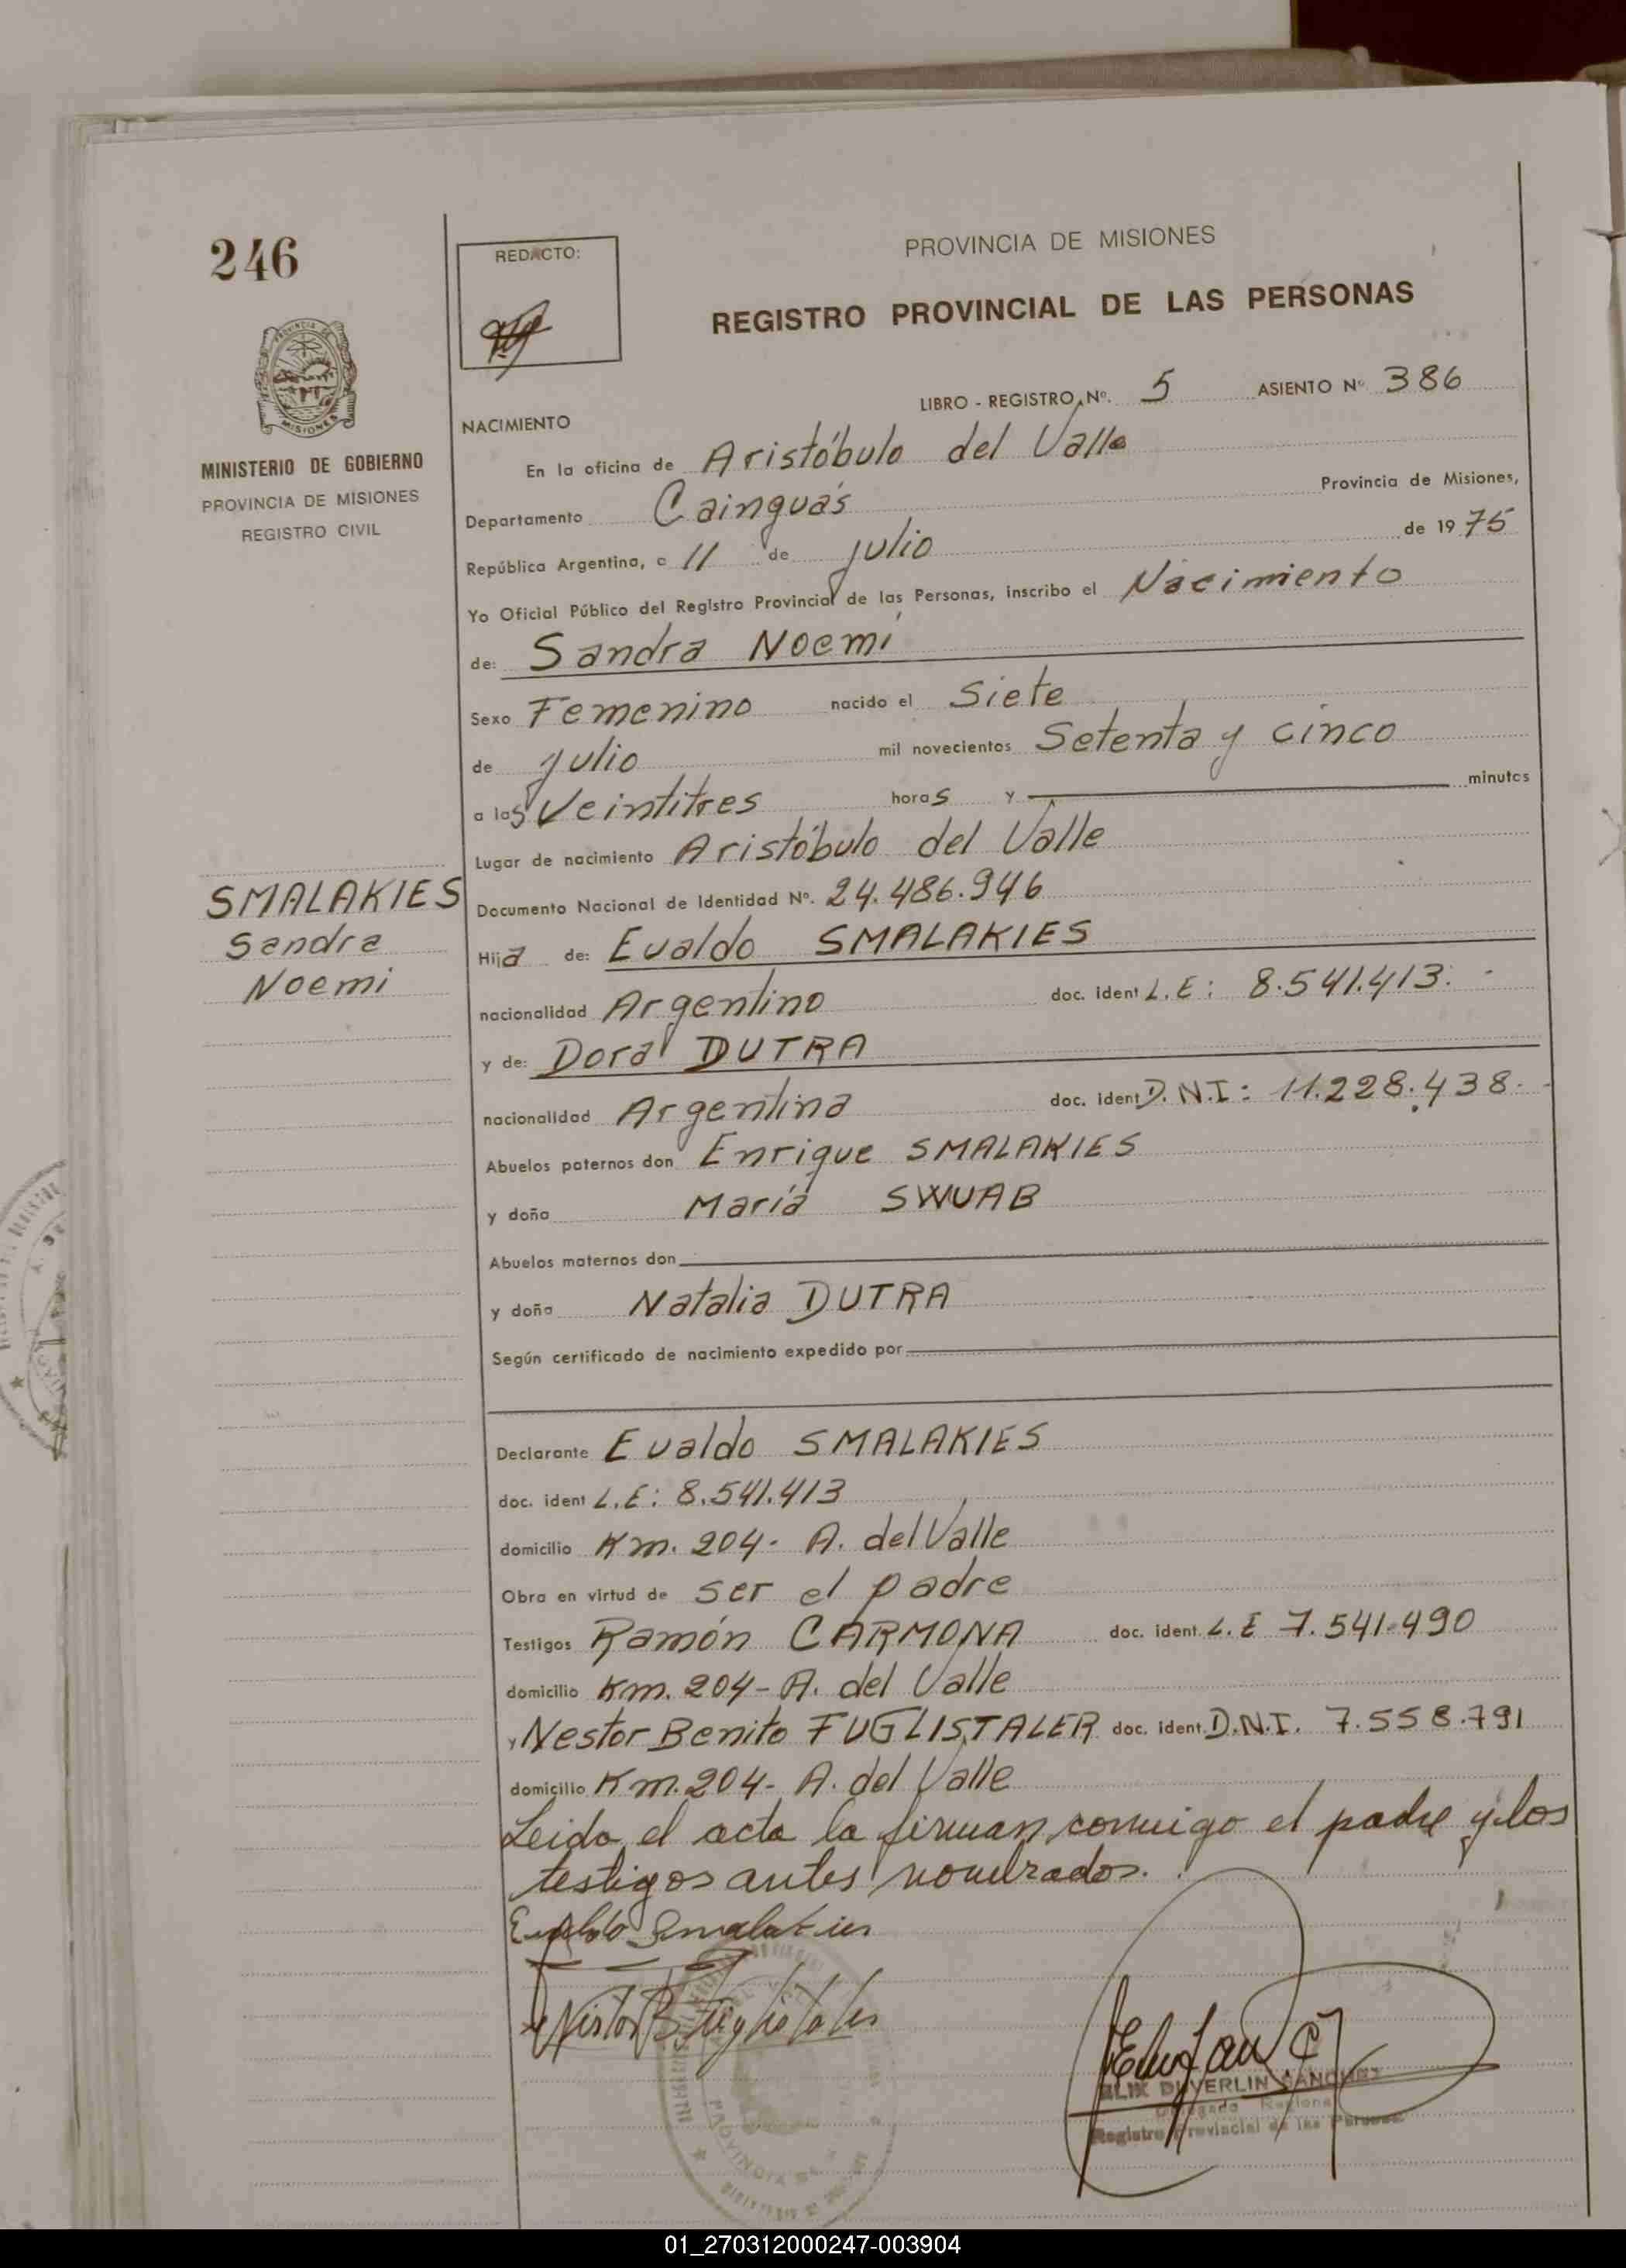 246
REDACTO:
PROVINCIA DE MISIONES
REGISTRO PROVINCIAL DE LAS PERSONAS
MISIONES
MINISTERIO DE GOBIERNO
PROVINCIA DE MISIONES
REGISTRO CIVIL
LIBRO - REGISTRO Nº. 5 ASIENTO Nº 386
NACIMIENTO
En la oficina de Aristóbulo del Valle
Departamento Cainguás Provincia de Misiones,
República Argentina, a 11 de julio de 1975
Yo Oficial Público del Registro Provincial de las Personas, inscribo el Nacimiento
de: Sandra Noemí
Sexo Femenino nacido el Siete
de julio mil novecientos Setenta y cinco
a las Veintitres horas y minutos
Lugar de nacimiento Aristóbulo del Valle
SMALAKIES
Sandra
Noemi
Documento Nacional de Identidad Nº. 24.486.946
Hija de: Evaldo SMALAKIES
nacionalidad Argentino doc. ident L.E: 8.541.413.
y de: Dora DUTRA
nacionalidad Argentina doc. ident D.N.I: 11.228.438.
Abuelos paternos don Enrique SMALAKIES
y doña María SWUAB
Abuelos maternos don
y doña Natalia DUTRA
Según certificado de nacimiento expedido por
Declarante Evaldo SMALAKIES
doc. ident L.E: 8.541.413
domicilio Km. 204- A. del Valle
Obra en virtud de ser el padre
Testigos Ramón CARMONA doc. ident. L.E 7.541.490
domicilio Km. 204- A. del Valle
y Nestor Benito FUGLISTALER doc. ident. D.N.I. 7.558.791
domicilio Km. 204- A. del Valle
Leida el acta la firman conmigo el padre y los
testigos antes nombrados.
Evaldo Smalakies
Nestor B Fuglistaler
ELIX DUVERLIN SANCHEZ
Delegado Regional
Registro Provincial de las Personas
PROVINCIA DE
01_270312000247-003904